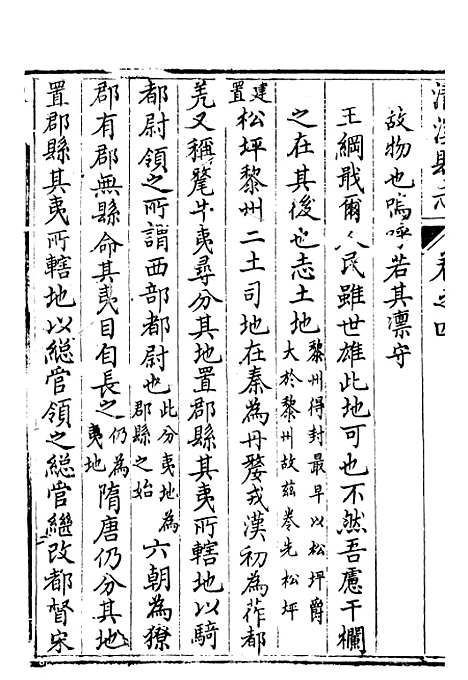 清溪縣志
卷之四
故物也嗚呼若其凛守
王綱戢爾人民雖世雄此地可也不然吾慮干欄
之在其後也志土地
黎州得封最早以松坪爵
大於黎州故兹卷先松坪
建置
松坪黎州二土司地在秦為丹𥠖戎漢初為莋都
羗又稱髦牛夷尋分其地置郡縣其夷所轄地以騎
都尉領之所謂西部都尉也
此分夷地為
郡縣之始
六朝為獠
郡有郡無縣命其夷目自長之
仍為
夷地
隋唐仍分其地
置郡縣其夷所轄地以總管領之總管繼改都督宋